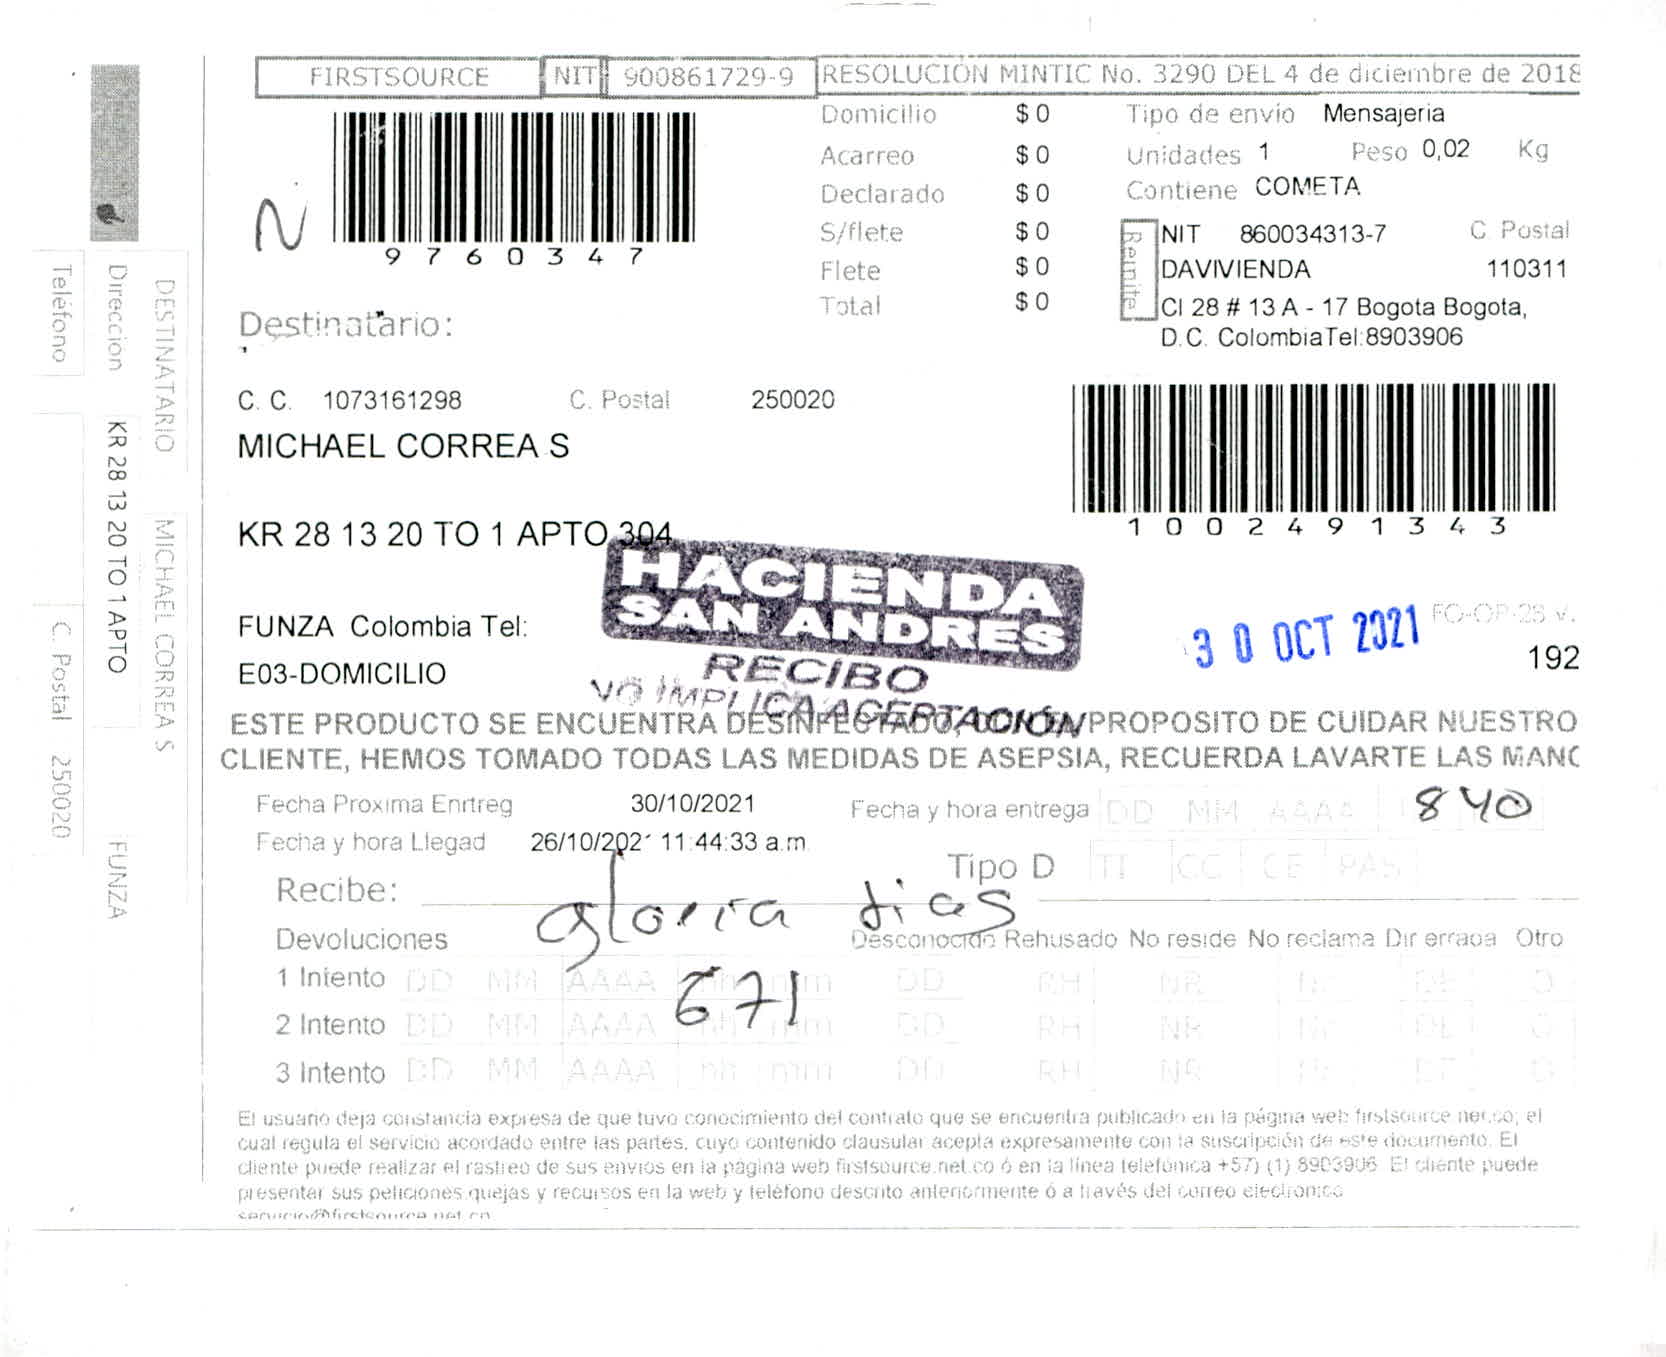 FIRSTSOURCE NIT 900861729-9 RESOLUCIÓN MINTIC No. 3290 DEL 4 de diciembre de 2018
9760347
N
Domicilio $ 0
Acarreo $ 0
Declarado $ 0
S/flete $ 0
Flete $ 0
Total $ 0
Tipo de envio Mensajeria
Unidades 1 Peso 0,02 Kg
Contiene COMETA
Remite
NIT 860034313-7 C. Postal
DAVIVIENDA 110311
Cl 28 # 13 A - 17 Bogota Bogota,
D.C. ColombiaTel:8903906
Destinatario:
C. C. 1073161298 C. Postal 250020
MICHAEL CORREA S
KR 28 13 20 TO 1 APTO 304
1002491343
HACIENDA
SAN ANDRES
RECIBO
NO IMPLICA ACEPTACIÓN
FUNZA Colombia Tel:
E03-DOMICILIO
30 OCT 2021
FO-OP-28 v.
192
ESTE PRODUCTO SE ENCUENTRA DESINFECTADO, PROPOSITO DE CUIDAR NUESTRO
CLIENTE, HEMOS TOMADO TODAS LAS MEDIDAS DE ASEPSIA, RECUERDA LAVARTE LAS MANO
Fecha Proxima Enrtreg 30/10/2021 Fecha y hora entrega DD MM AAAA 840
Fecha y hora Llegad 26/10/2021 11:44:33 a.m.
Tipo D TI CC CE PAS
Recibe: gloria dias
671
Devoluciones Desconocido Rehusado No reside No reclama Dir errada Otro
1 Intento DD MM AAAA hh mm DD RH NR Nr DE O
2 Intento DD MM AAAA hh mm DD RH NR Nr DE O
3 Intento DD MM AAAA hh mm DD RH NR Nr DE O
El usuario deja constancia expresa de que tuvo conocimiento del contrato que se encuentra publicado en la página web firstsource.net.co; el
cual regula el servicio acordado entre las partes, cuyo contenido clausular acepta expresamente con la suscripción de este documento. El
cliente puede realizar el rastreo de sus envios en la página web firstsource.net.co ó en la línea telefónica +57) (1) 8903906 El cliente puede
presentar sus peticiones quejas y recursos en la web y teléfono descrito anteriormente ó a través del correo electronico
servicio@firstsource.net.co
DESTINATARIO MICHAEL CORREA S
Direccion KR 28 13 20 TO 1 APTO FUNZA
Teléfono C. Postal 250020